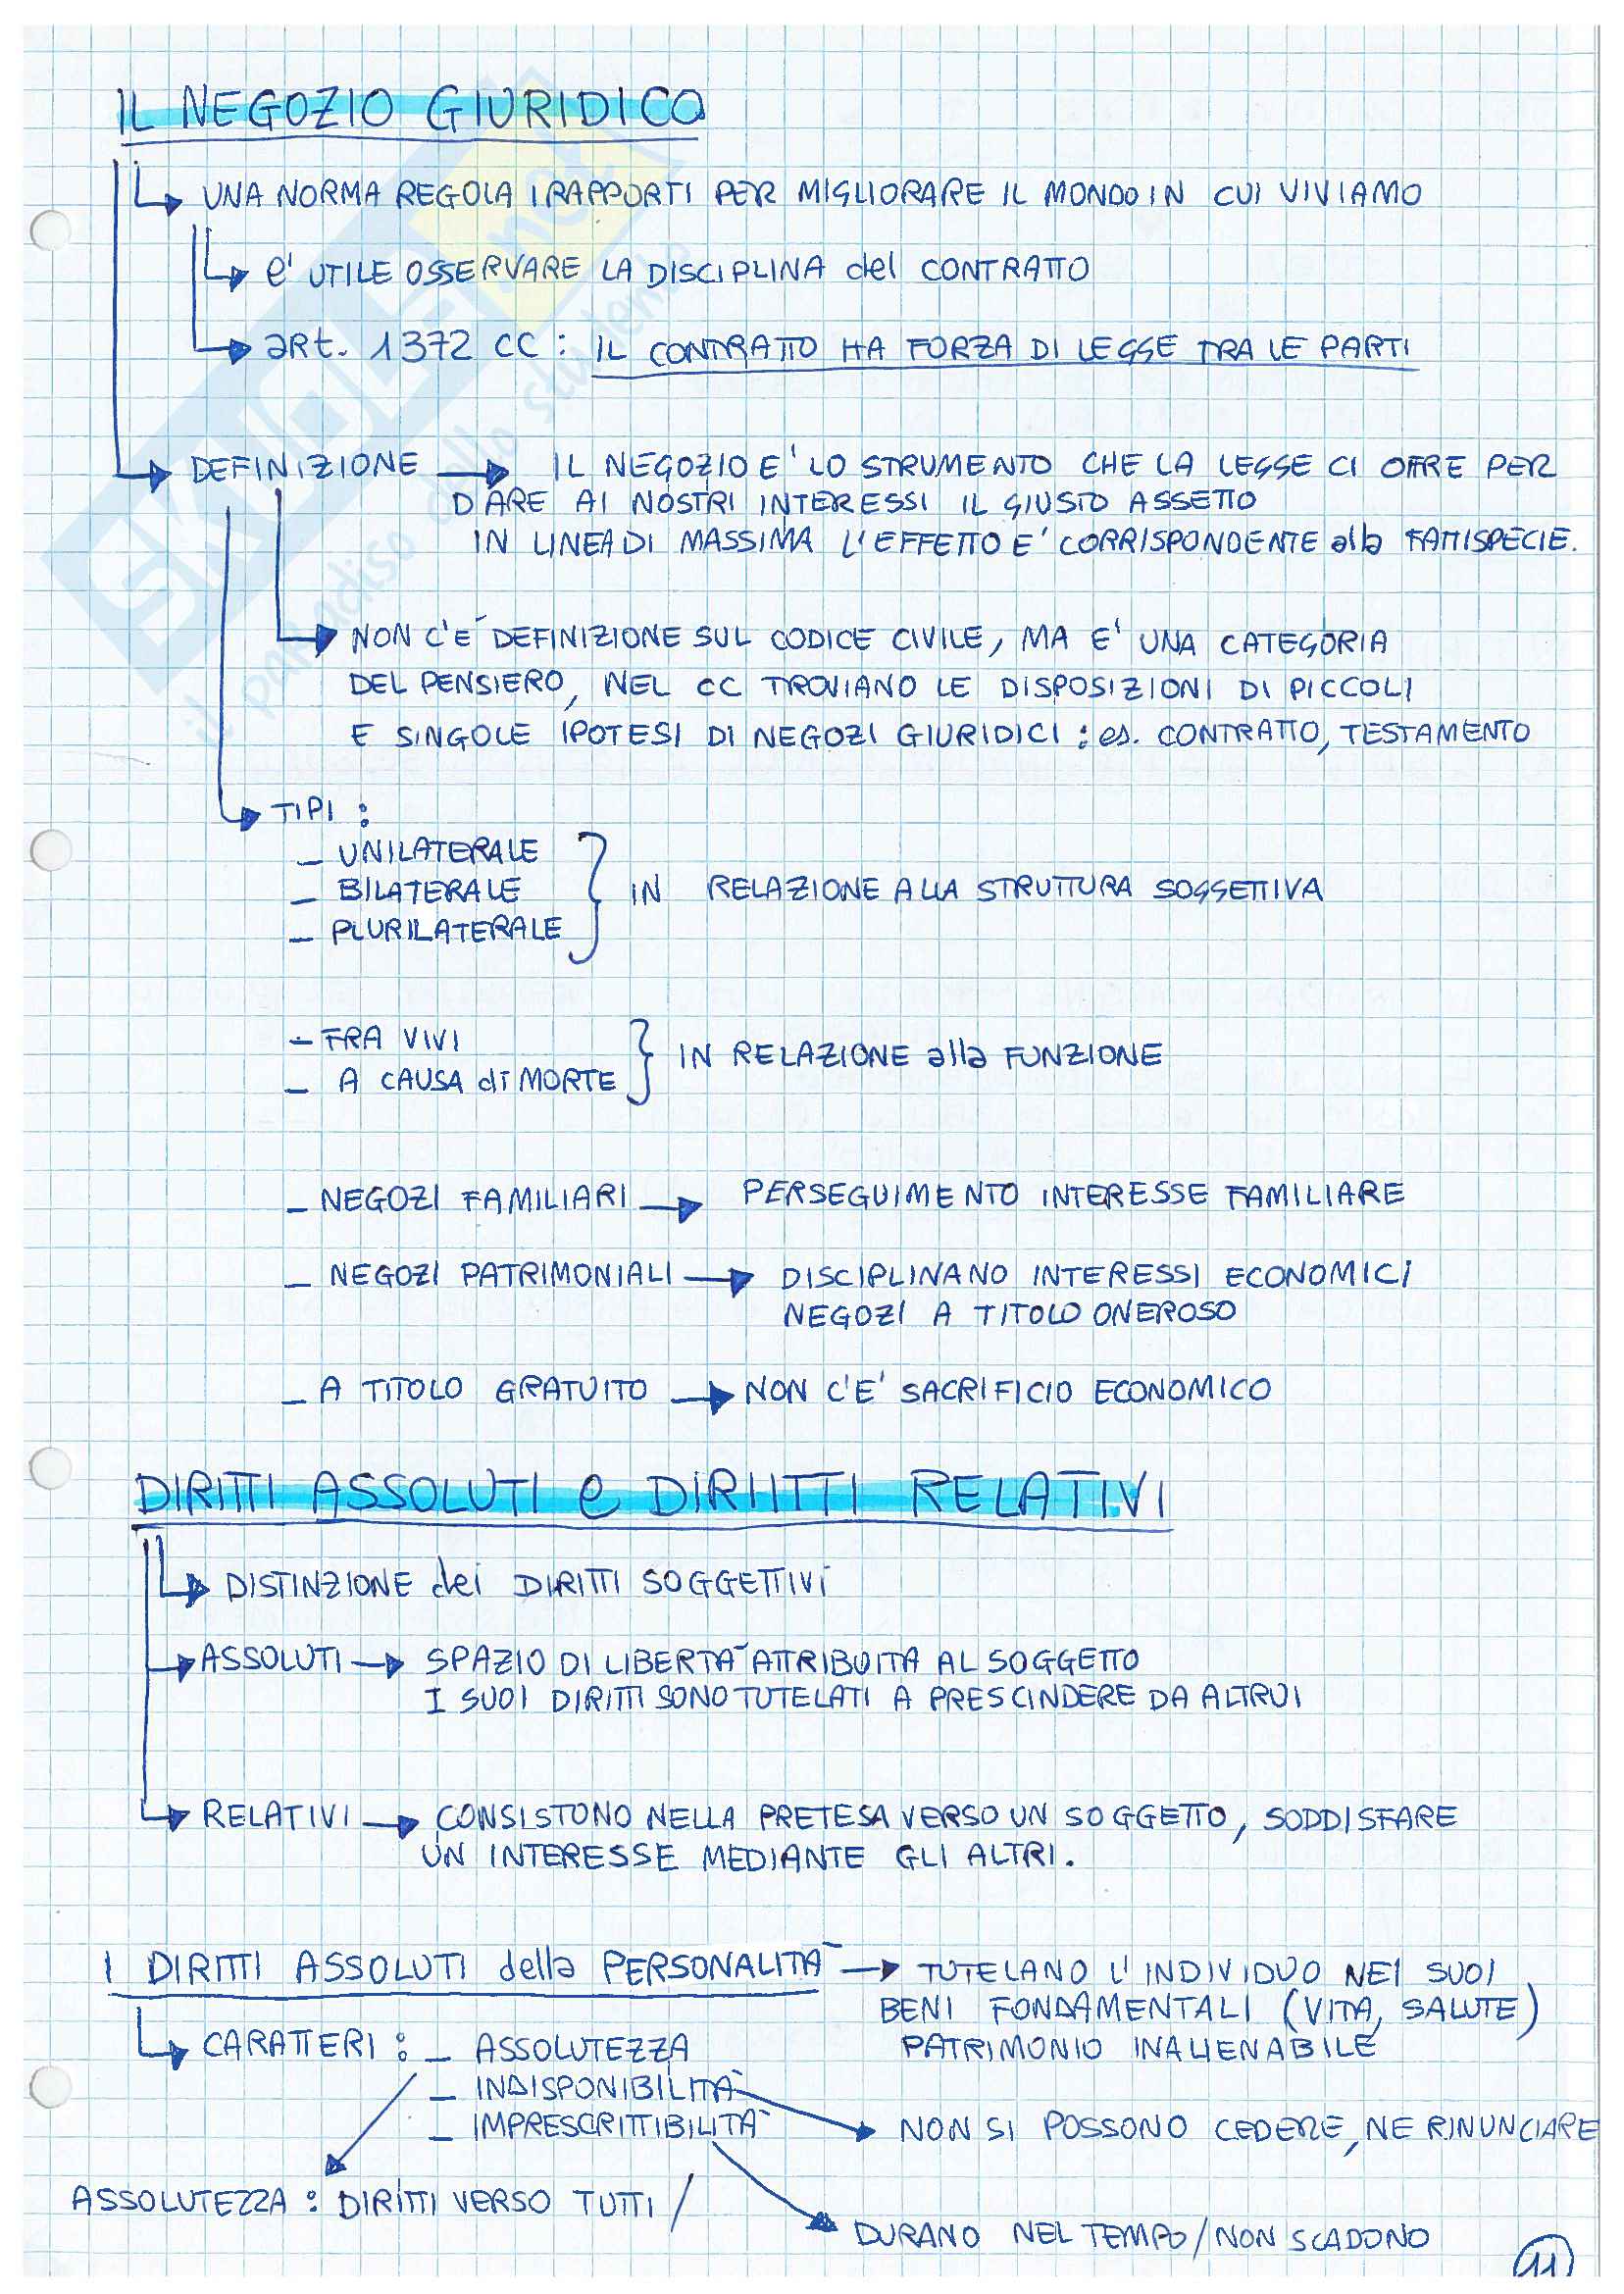 IL NEGOZIO GIURIDICO
UNA NORMA REGOLA I RAPPORTI PER MIGLIORARE IL MONDO IN CUI VIVIAMO
e' UTILE OSSERVARE LA DISCIPLINA del CONTRATTO
art. 1372 CC : IL CONTRATTO HA FORZA DI LEGGE TRA LE PARTI
DEFINIZIONE IL NEGOZIO E' LO STRUMENTO CHE LA LEGGE CI OFFRE PER
DARE AI NOSTRI INTERESSI IL GIUSTO ASSETTO
IN LINEA DI MASSIMA L'EFFETTO E' CORRISPONDENTE alla FATTISPECIE.
NON C'E' DEFINIZIONE SUL CODICE CIVILE, MA E' UNA CATEGORIA
DEL PENSIERO, NEL CC TROVIANO LE DISPOSIZIONI DI PICCOLI
E SINGOLE IPOTESI DI NEGOZI GIURIDICI : es. CONTRATTO, TESTAMENTO
TIPI :
- UNILATERALE
- BILATERALE IN RELAZIONE ALLA STRUTTURA SOGGETTIVA
- PLURILATERALE
- FRA VIVI
- A CAUSA di MORTE IN RELAZIONE alla FUNZIONE
- NEGOZI FAMILIARI PERSEGUIMENTO INTERESSE FAMILIARE
- NEGOZI PATRIMONIALI DISCIPLINANO INTERESSI ECONOMICI
NEGOZI A TITOLO ONEROSO
- A TITOLO GRATUITO NON C'E' SACRIFICIO ECONOMICO
DIRITTI ASSOLUTI e DIRIITTI RELATIVI
DISTINZIONE dei DIRITTI SOGGETTIVI
ASSOLUTI SPAZIO DI LIBERTA' ATTRIBUITA AL SOGGETTO
I SUOI DIRITTI SONO TUTELATI A PRESCINDERE DA ALTRUI
RELATIVI CONSISTONO NELLA PRETESA VERSO UN SOGGETTO, SODDISFARE
UN INTERESSE MEDIANTE GLI ALTRI.
I DIRITTI ASSOLUTI della PERSONALITA' TUTELANO L'INDIVIDUO NEI SUOI
BENI FONDAMENTALI (VITA, SALUTE)
PATRIMONIO INALIENABILE
CARATTERI : - ASSOLUTEZZA
- INDISPONIBILITA'
- IMPRESCRITTIBILITA' NON SI POSSONO CEDERE, NE RINUNCIARE
ASSOLUTEZZA : DIRITTI VERSO TUTTI /
DURANO NEL TEMPO / NON SCADONO
11
SKUOLA.net
il paradiso dello studente